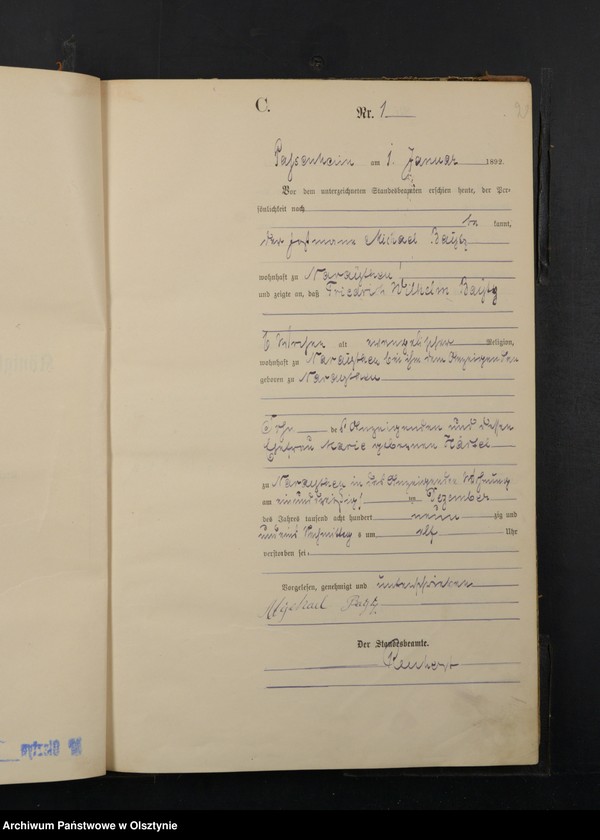 C.
Nr. 1
Passenheim am 1. Januar 1892.
Vor dem unterzeichneten Standesbeamten erschien heute, der Per-
sönlichkeit nach
be kannt,
der Michael
wohnhaft zu Naraythen
und zeigte an, daß Friedrich Wilhelm
6 Wochen alt evangelischer Religion,
wohnhaft zu Naraythen bei ihm dem Anzeigenden
geboren zu Naraythen
Sohn des Anzeigenden und dessen
Ehefrau Marie geborenen
zu Naraythen in des Anzeigenden Wohnung
am einunddreißig im Dezember
des Jahres tausend acht hundert neun zig und
und eins Vormittag s um elf Uhr
verstorben sei.
Vorgelesen, genehmigt und unterschrieben
Der Standesbeamte.
Archiwum Państwowe w Olsztynie